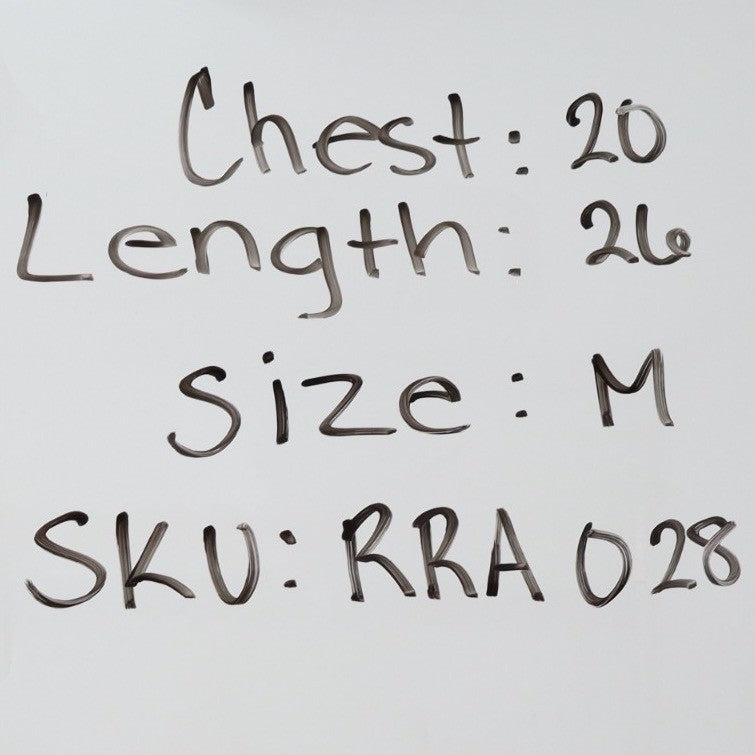 Chest: 20
Length: 26
Size: M
SKU: RRA 028